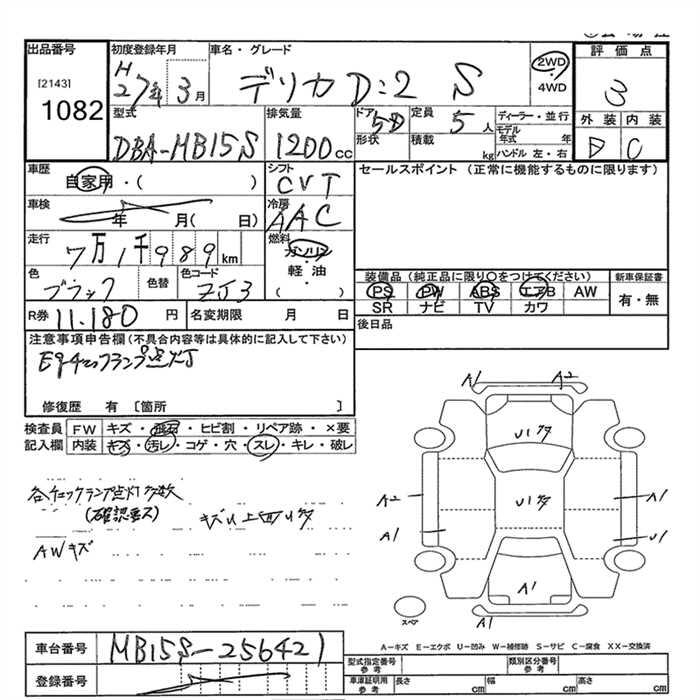 出品番号 初度登録年月 車名・グレード 評価点
[2143] 1082
H27年 3月 デリカ D:2 S 2WD ・ 4WD 3
型式 排気量 ドア 形状 定員 積載 ディーラー・並行 外装 内装
DBA-MB15S 1200cc 5D 5人 kg モデル年式 年 ハンドル 左・右 D C
車歴 シフト セールスポイント (正常に機能するものに限ります)
自家用・( ) CVT
車検 年 月( 日) 冷房 AAC
走行 7万1千989km 燃料 ガソリン・軽油・( )
色 色替 色コード 装備品 (純正品に限り○をつけてください) 新車保証書
ブラック ZJ3 PS PW ABS エアB AW 有・無
SR ナビ TV カワ
R券 11.180円 名変期限 月 日 後日品
注意事項申告欄 (不具合内容等は具体的に記入して下さい)
Egチェックランプ点灯
修復歴 有 〔箇所 〕
検査員 FW キズ・飛石・ヒビ割・リペア跡・×要
記入欄 内装 キズ・汚レ・コゲ・穴・スレ・キレ・破レ
各チェックランプ点灯多数
(確認要ス) キズU上面U多
AWキズ
A1 A2
U1多
A2 U1多 A1
A1 U1
A1
スペア A1
A-キズ E-エクボ U-凹み W-補修跡 S-サビ C-腐食 XX-交換済
車台番号 MB15S-256421
型式指定番号 参考 類別区分番号 参考
登録番号
車庫証明用 参考 長さ cm 幅 cm 高さ cm